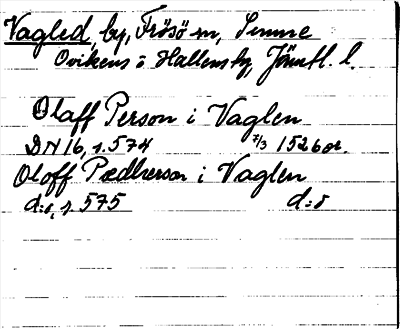 Vagled, by, Frösö sn, Sunne
Ovikens o Hallens tg, Jämtl. l.
Olaff Person i Vaglen
DN 16, s. 574 7/3 1526 or.
Oloff Pædherson i Vaglen
d:o, s. 575 d:o